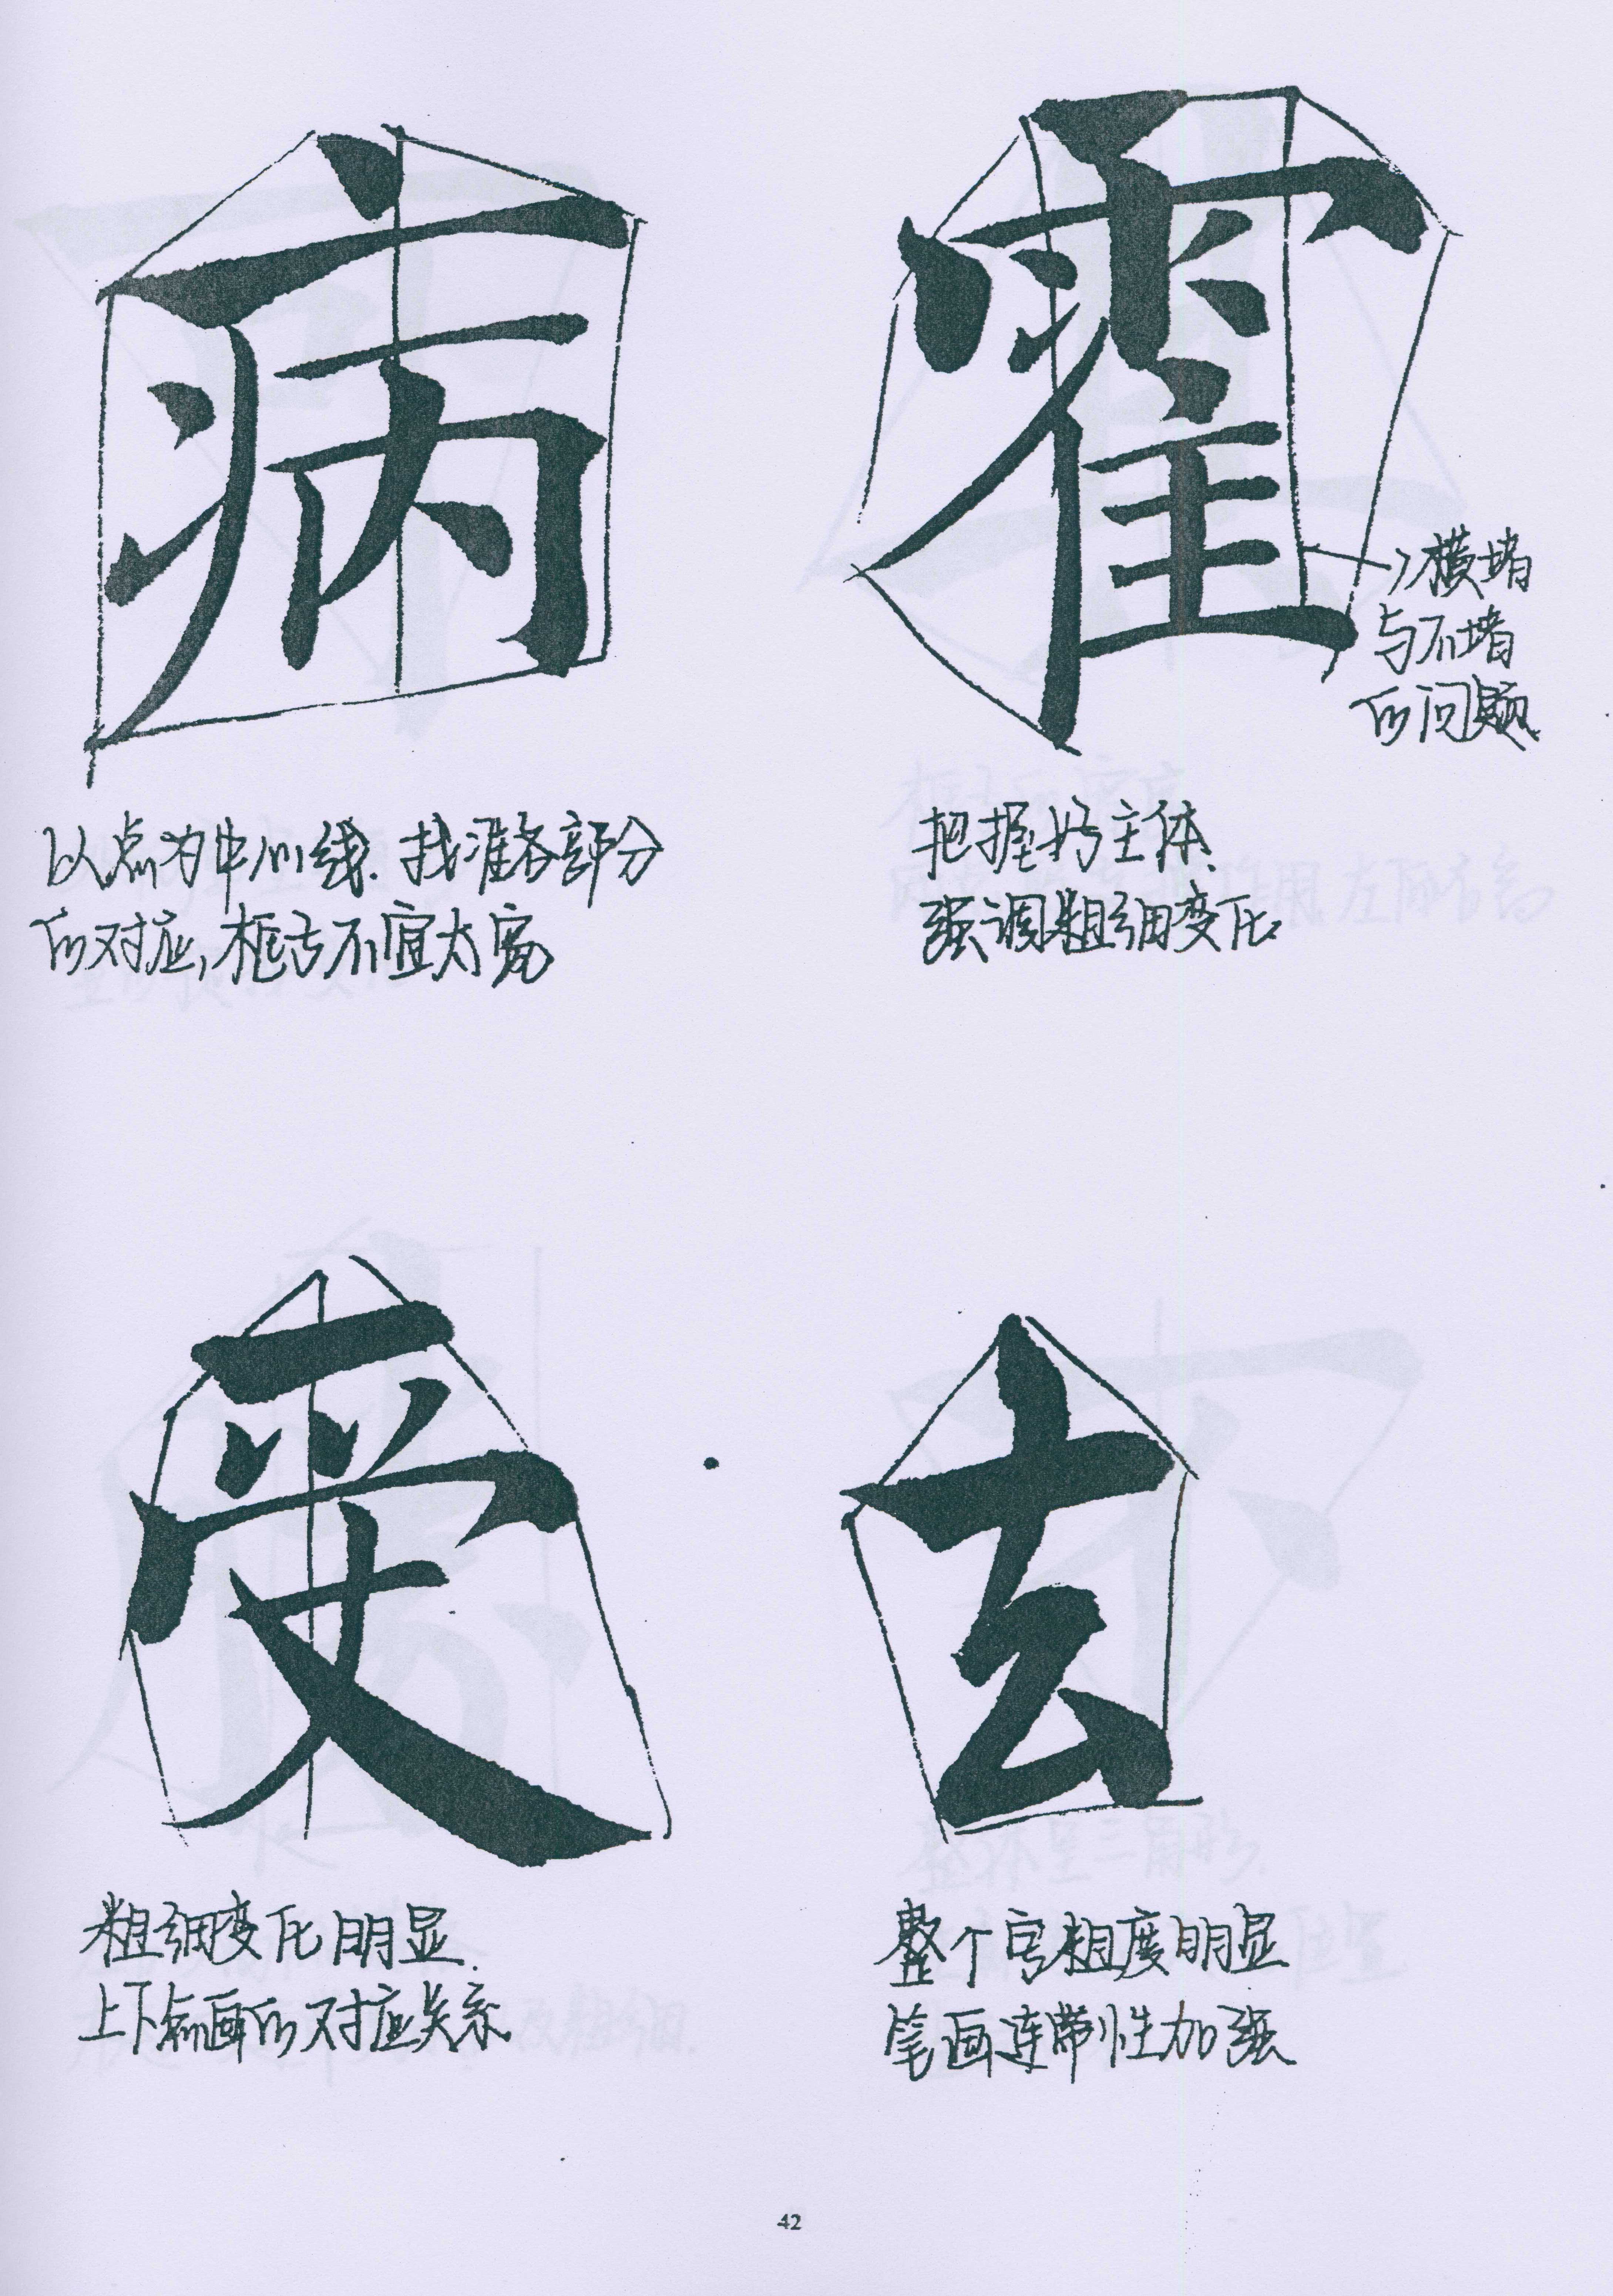 病
霍
横堵
与不堵
的问题
以点为中心线.找准各部分
的对应,框字不宜太宽
把握好主体.
强调粗细变化.
受
玄
粗细变化明显.
上下点画的对应关系
整个字粗度明显
笔画连带性加强
42